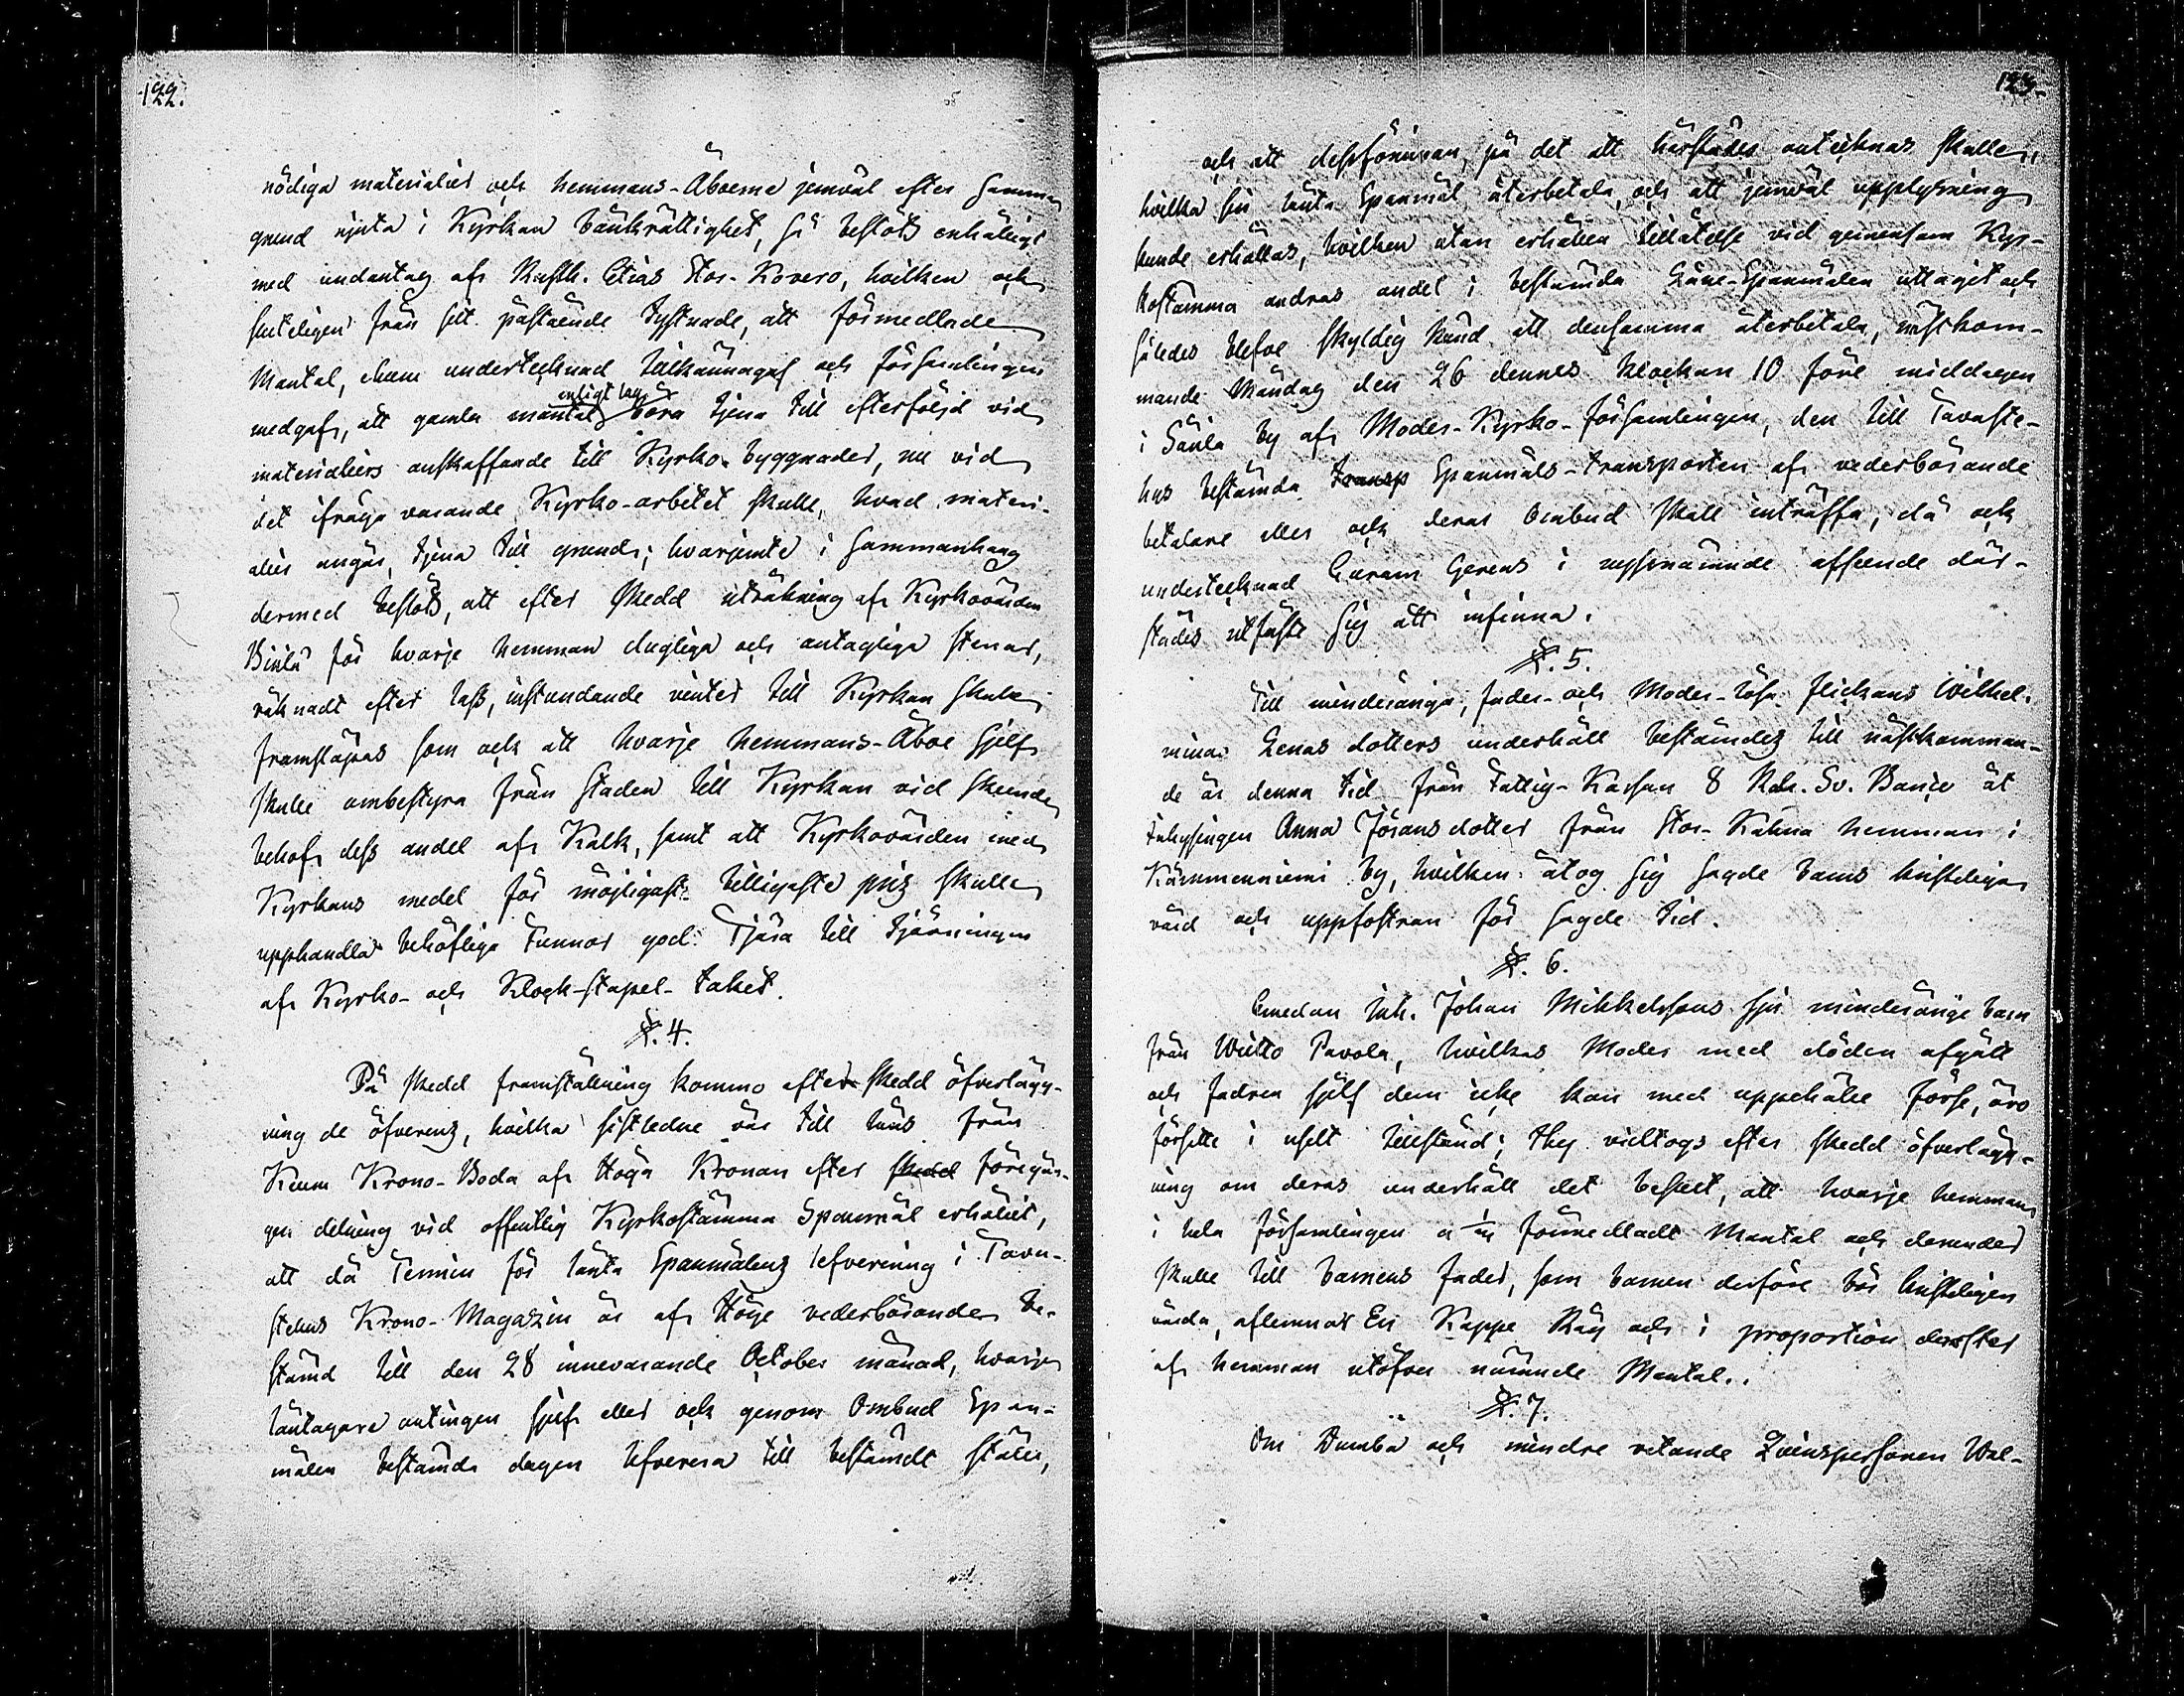 122.
nödiga materialier och hemmans-Åboerne jemväl efter samma
grund njuta i Kyrkan bänkrättighet, så beslöts enhälligt
med undantag af Rusth. Elias Stor-Kovero, hvilken och
sluteligen från sitt påstående tystnade, att förmedlade
Mantal, ehuru undertecknad tillkännagaf och Församlingen
medgaf, att gamla mantal enligt lag böra tjena till efterföljd vid
materialiers anskaffande till Kyrko-byggnader, nu vid
det ifråga varande Kyrko-arbetet skulle, hvad materi-
alier angår, tjena till grund; hvarjemte i sammanhang
dermed beslöts, att efter skedd uträkning af Kyrkovärden
för hvarje hemman dugliga och antagliga stenar,
räknadt efter lass, instundande vinter till Kyrkan skulle
framsläpas som och att hvarje hemmans-Åboe sjelf
skulle ombestyra från staden till Kyrkan vid skeende
behof dess andel af Kalk, samt att Kyrkovärden med
Kyrkans medel för möjligast billigaste pris skulle
upphandla behöfliga Tunnor god Tjära till tjärningen
af Kyrko- och Klock-stapel-taket.
§. 4.
På skedd framställning kommo efter skedd öfverlägg-
ning de öfverens, hvilka sistledne vår till låns från
Kumo Krono-Boda af Höga Kronan efter skedd föregån-
gen delning vid offentlig Kyrkostämma Spanmål erhållit,
att då Termin för lånta Spanmålens lefverering i Tava-
stehus Krono-Magazin är af Höge vederbörande be-
stämd till den 28 innevarande October månad, hvarje
låntagare antingen sjelf eller och genom Ombud Span-
målen bestämda dagen lefverera till bestämdt ställe,
123.
och att dessförinnan, på det att härstädes antecknas skulle,
hvilka sin lånta Spanmål återbetala, och att jemväl upplysning
kunde erhållas, hvilken utan erhållen tillåtelse vid gemensam Kyr-
kostämma andras andel i bestämda Låne-Spanmålen uttagit och
således blefve skyldig känd att densamma återbetala, nästkom-
mande Måndag den 26 dennes klockan 10 före middagen
i Säxlä by af Moder-Kyrko-församlingen, den till Tavaste-
hus bestämda transp Spanmåls-transporten af vederbörande
betalare eller och deras Ombud skall inträffa, då och
undertecknad Curam Gerens i nyssnämnde afseende där-
städes utfäste sig att infinna.
§. 5.
Till minderåriga, fader- och Moder-lösa flickans Wilhel-
mina Lenas dotters underhåll bestämdes till nästkomman-
de år denna tid från Fattig-Kassan 8 Rdr. Sv. Banco åt
Inhysingen Anna Jörans dotter från Stor-Kälmä hemman i
Kämmenniemi by, hvilken åtog sig sagde barns kristeliga
vård och uppfostran för sagde tid.
§. 6.
Emedan Inh. Johan Mikkelssons sju minderårige barn
från Wiitto Pavola, hvilkas Moder med döden afgått
och fadren sjelf dem icke kan med uppehälle förse, äro
försatte i uselt tillstånd; thy vidtogs efter skedd öfverlägg-
ning om deras underhåll det beslut, att hvarje hemman
i hela församlingen a förmedladt Mantal och derunder
skulle till barnens fader, som barnen derföre bör kristeligen
vårda, aflemnas En Kappe Råg och i proportion derefter
af hemman utöfver nämnde Mantal.
§. 7.
Om Dumba och mindre vetande Qvinspersonen Wal-